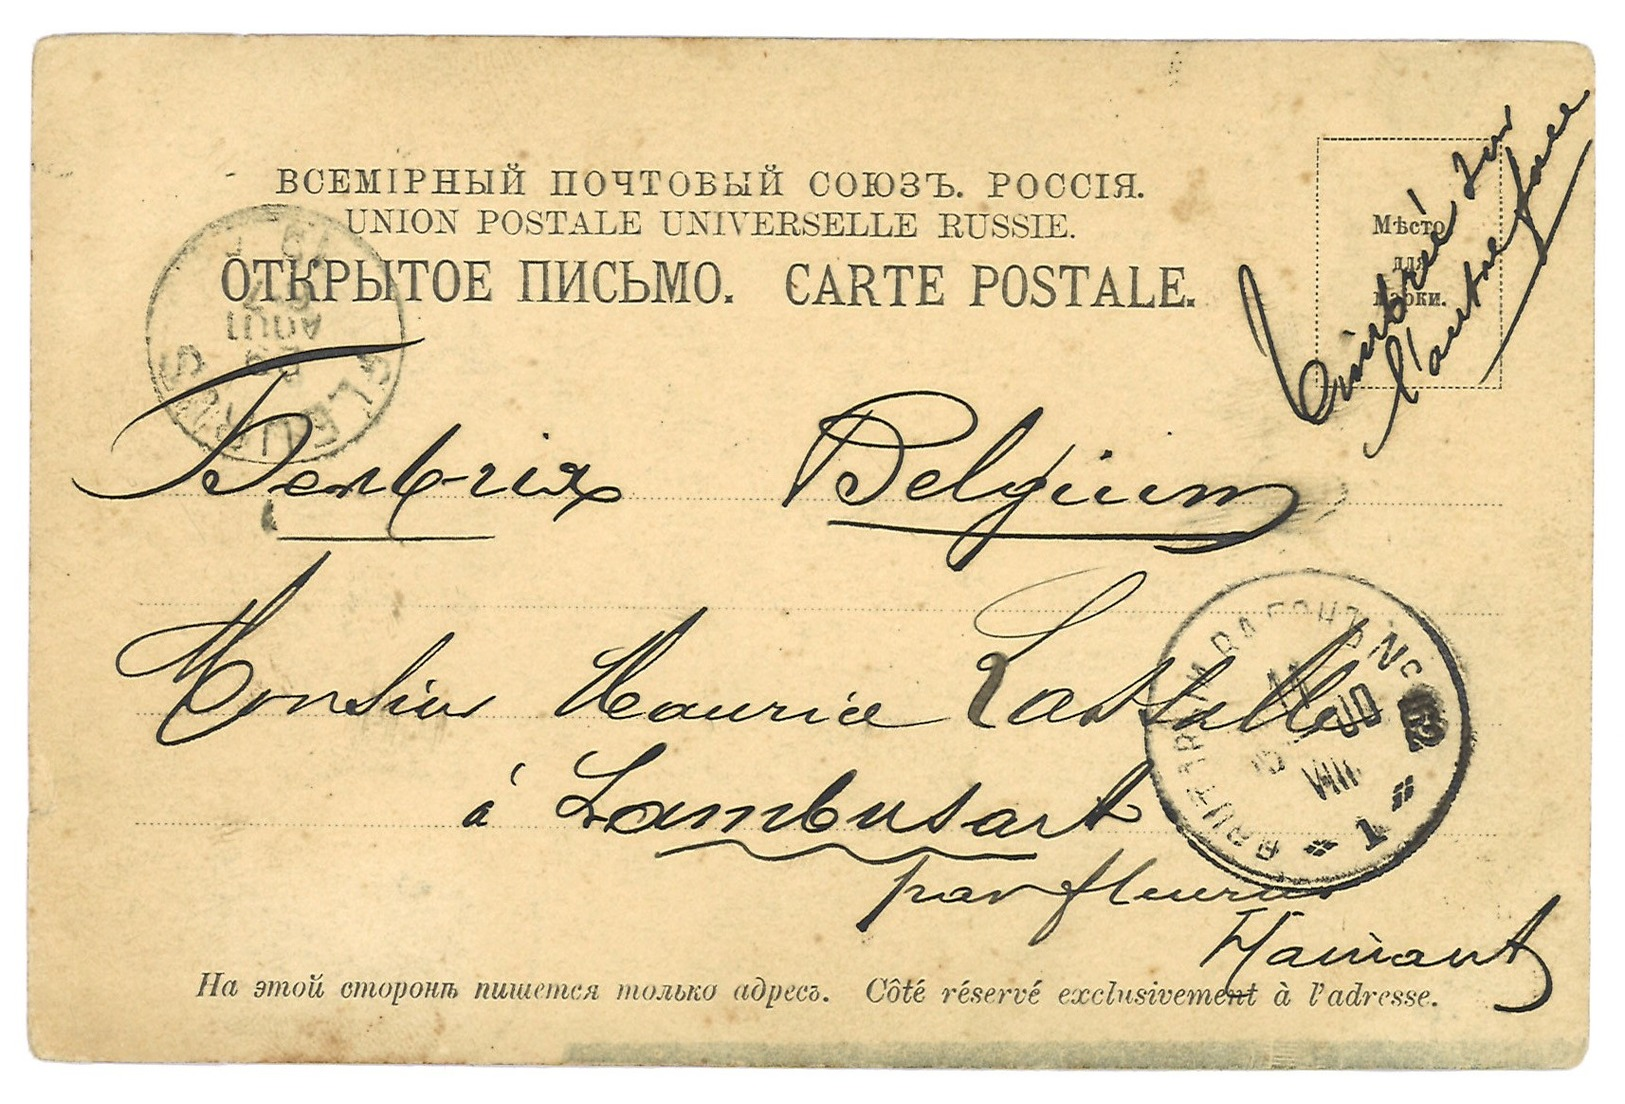 ВСЕМІРНЫЙ ПОЧТОВЫЙ СОЮЗЪ. РОССІЯ.
UNION POSTALE UNIVERSELLE RUSSIE.
ОТКРЫТОЕ ПИСЬМО. CARTE POSTALE.
Мѣсто
для
марки.
Timbré sur
l'autre face
FLEURUS
AOUT
Belgium
Monsieur Maurice
à Lambusart
par fleurus
Hainaut
№
VIII
1
На этой сторонѣ пишется только адресъ. Côté réservé exclusivement à l'adresse.